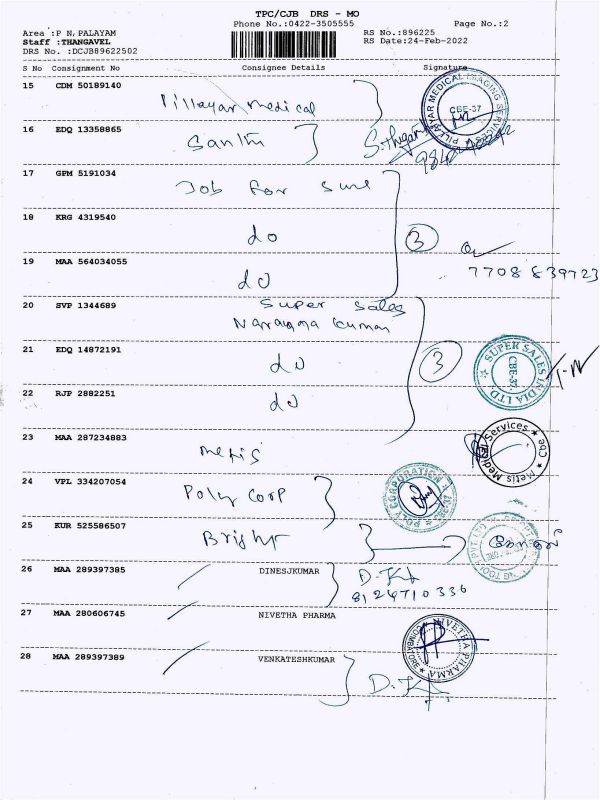 TPC/CJB DRS - MO
Phone No.:0422-3505555 Page No.:2
Area :P N,PALAYAM RS No.:896225
Staff :THANGAVEL RS Date:24-Feb-2022
DRS No. :DCJB89622502
S No Consignment No Consignee Details Signature
15 CDM 50189140
Pillayar medical
PILLAYAR MEDICAL IMAGING SERVICES CBE-37
16 EDQ 13358865
Santhi
17 GPM 5191034
Job for sure
18 KRG 4319540
do 3
19 MAA 564034055
do 7708839723
20 SVP 1344689
Super sales
Narayana kumar
21 EDQ 14872191
do 3
SUPER SALES INDIA LTD CBE-37
22 RJP 2882251
do
23 MAA 287234883
metis
Metis Medical Services Cbe
24 VPL 334207054
Poly Corp
POLY CORPORATION
25 EUR 525586507
Bright
26 MAA 289397385 DINESJKUMAR
8124710336
27 MAA 280606745 NIVETHA PHARMA
NIVETHA PHARMA COIMBATORE
28 MAA 289397389 VENKATESHKUMAR